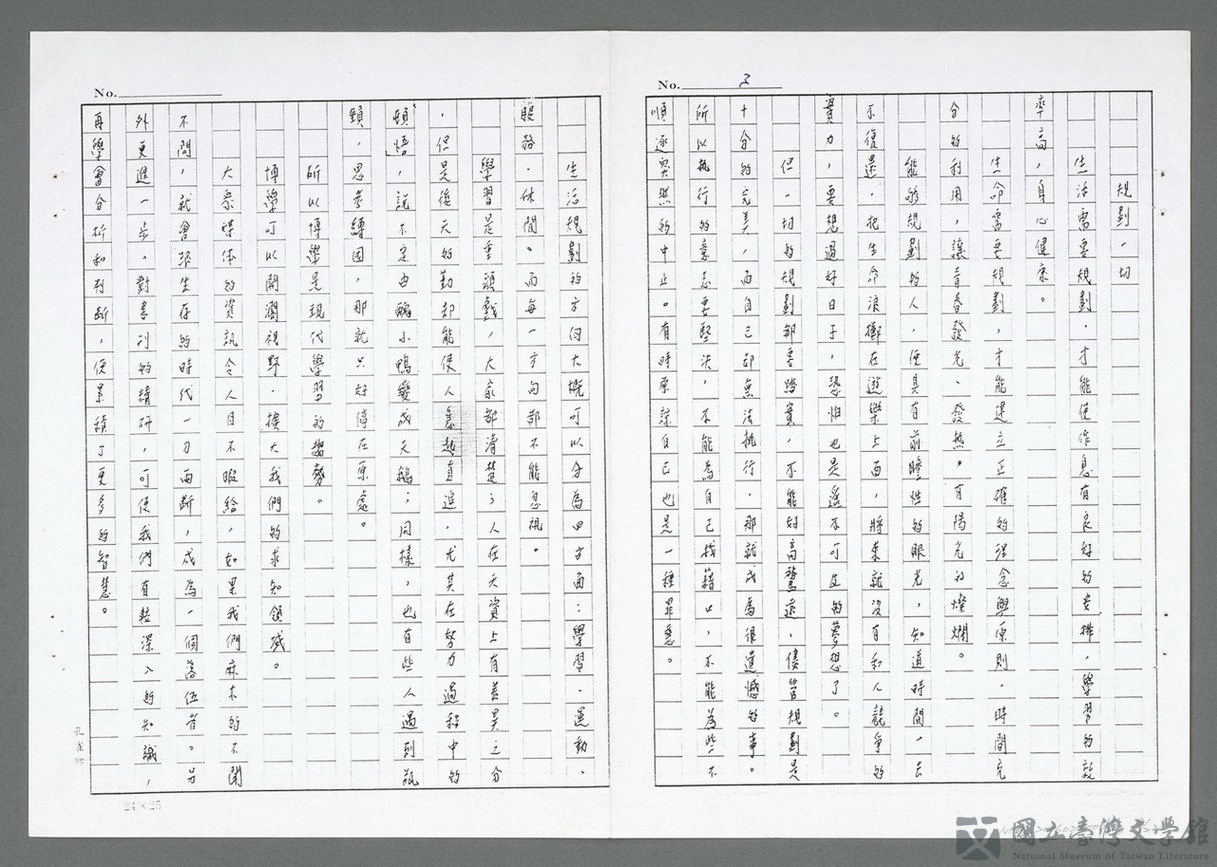 No. 3
規劃一切
生活需要規劃,才能使作息有良好的安排,學習的效
率高,身心健康。
生命需要規劃,才能建立正確的理念與原則,時間充
分的利用,讓青春發光、發熱,有陽光的燦爛。
能夠規劃的人,便具有前瞻性的眼光,知道時間,去
不復還,把生命浪擲在遊樂上面,將來就沒有和人競爭的
實力,要想過好日子,恐怕也是遙不可及的夢想了。
但一切的規劃都要踏實,不能好高騖遠,儘管規劃是
十分的完美,而自己卻無法執行,那就成為很遺憾的事。
所以執行的意志要堅決,不能為自己找藉口,不能為些不
順逐突然的中止。有時原諒自己也是一種罪惡。
No.
生活規劃的方向大概可以分為四方面:學習、運動、
服務、休閒。而每一方向都不能忽視。
學習是重頭戲,大家都清楚;人在天資上有差異之分
,但是後天的勤卻能使人急起直追,尤其在努力過程中的
頓悟,說不定由醜小鴨變成天鵝;同樣,也有些人遇到瓶
頸,思考纏困,那就只好停在原處。
所以博學是現代學習的趨勢。
博學可以開濶視野,擴大我們的求知領域。
大眾媒体的資訊令人目不暇給,如果我們麻木的不聞
不問,就會跟生存的時代一刀兩斷,成為一個落伍者。另
外更進一步,對書刊的精研,可使我們有較深入的知識,
再學會分析和判斷,便累積了更多的智慧。
孔雀牌
24×25
國立臺灣文學館
National Museum of Taiwan Literature